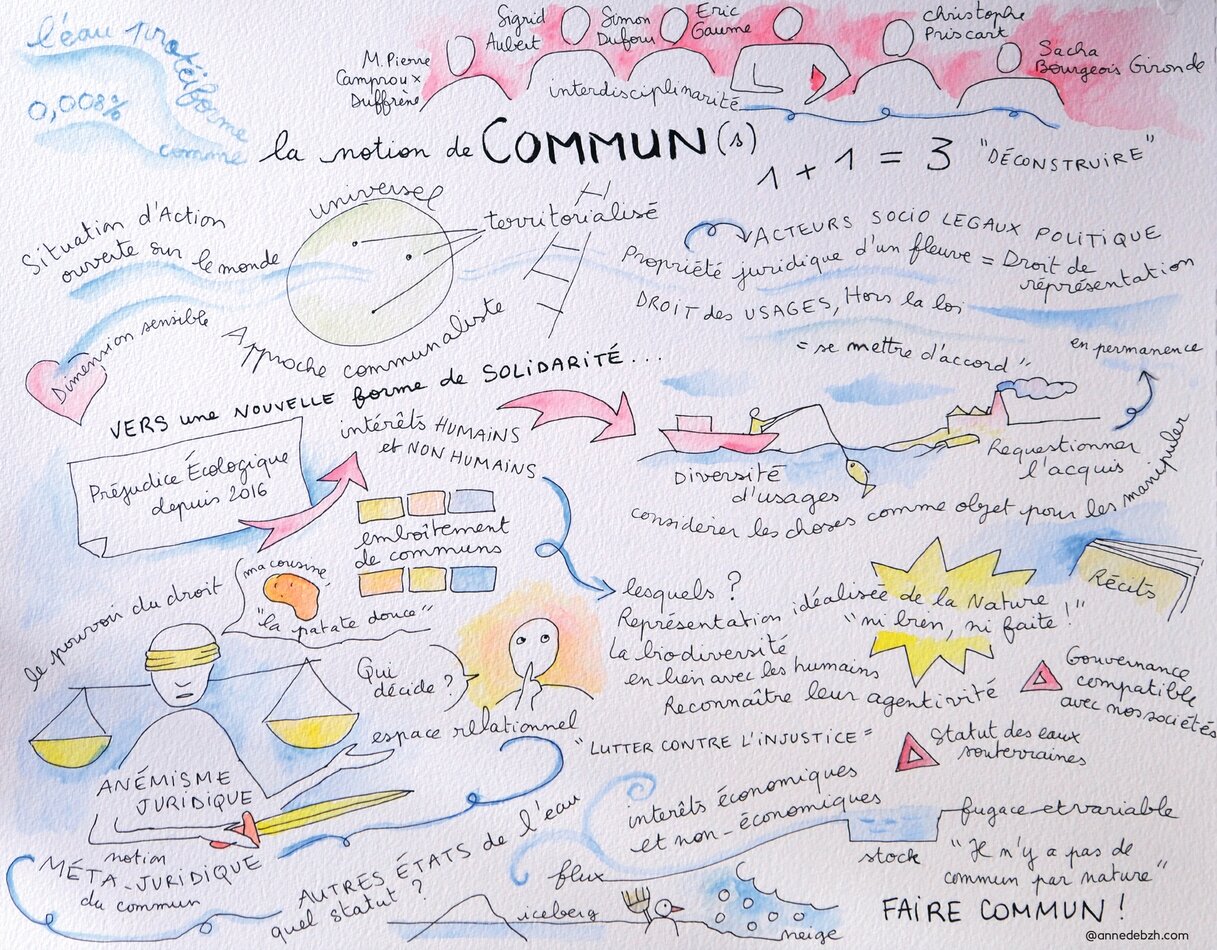 l'eau protéiforme
0,008%
comme
M. Pierre
Camproux
Duffrène
Sigrid
Aubert
Simon
Dufour
Eric
Gaume
Christophe
Priscart
Sacha
Bourgeois Gironde
interdisciplinarité
la notion de COMMUN(s)
1 + 1 = 3 "DÉCONSTRUIRE"
Situation d'Action
ouverte sur le monde
universel
territorialisé
Dimension sensible
Approche communaliste
ACTEURS SOCIO LEGAUX POLITIQUE
Propriété juridique d'un fleuve = Droit de
réprésentation
DROIT des USAGES, Hors la loi
= se mettre d'accord "
en permanence
VERS une NOUVELLE forme de SOLIDARITÉ...
Préjudice Écologique
depuis 2016
intérêts HUMAINS
et NON HUMAINS
emboîtement
de communs
Diversité
d'usages
Requestionner
l'acquis
considérer les choses comme objet pour les manipuler
le pouvoir du droit
ma cousine
"la patate douce"
Qui
décide ?
espace relationnel
lesquels ?
Représentation idéalisée de la Nature
"ni bien, ni faite !"
La biodiversité
en lien avec les humains
Reconnaître leur agentivité
Récits
Gouvernance
compatible
avec nos sociétés
"LUTTER CONTRE L'INJUSTICE"
Statut des eaux
souterraines
ANÉMISME
JURIDIQUE
notion
MÉTA-JURIDIQUE
du commun
AUTRES ÉTATS de l'eau
quel statut ?
intérêts économiques
et non-économiques
flux
stock
fugace et variable
"Je n'y a pas de
commun par nature"
iceberg
neige
FAIRE COMMUN !
@annedebzh.com